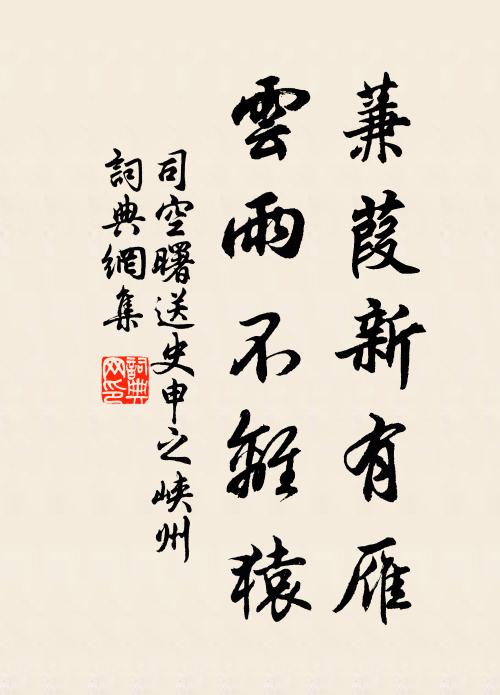 蒹葭新有雁
雲雨不離猿
司空曙送史申之峽州
詞典網集
詞典網印